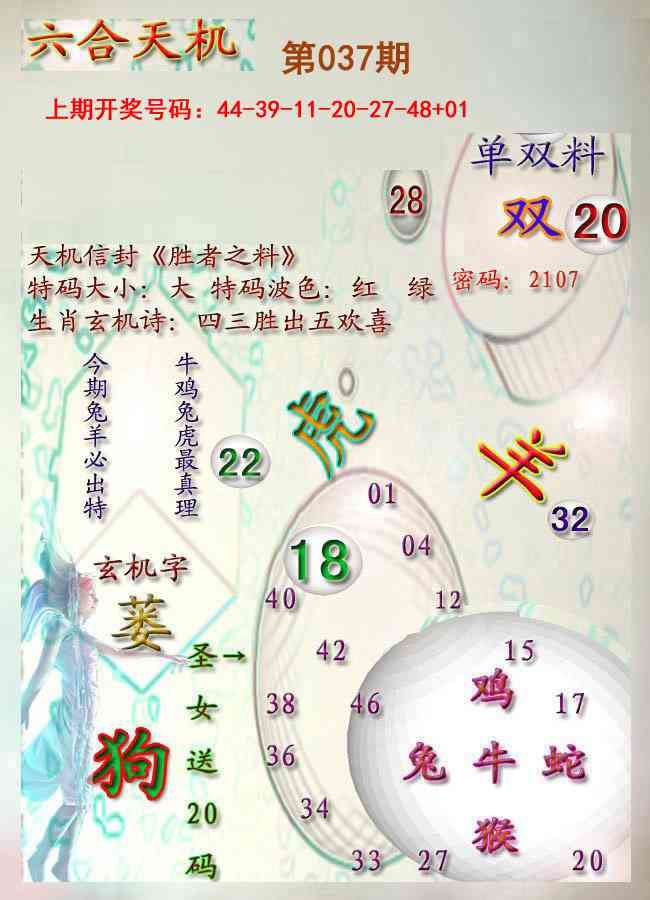 六合天机
第037期
上期开奖号码：44-39-11-20-27-48+01
单双料
28
双 20
天机信封《胜者之料》
特码大小：大 特码波色：红 绿
密码：2107
生肖玄机诗：四三胜出五欢喜
今期兔羊必出特
牛鸡兔虎最真理
虎
羊
22
32
01
18
04
玄机字
40
12
蒌
圣→女送20码
42
15
鸡
38
46
17
狗
36
兔 牛 蛇
34
猴
33
27
20